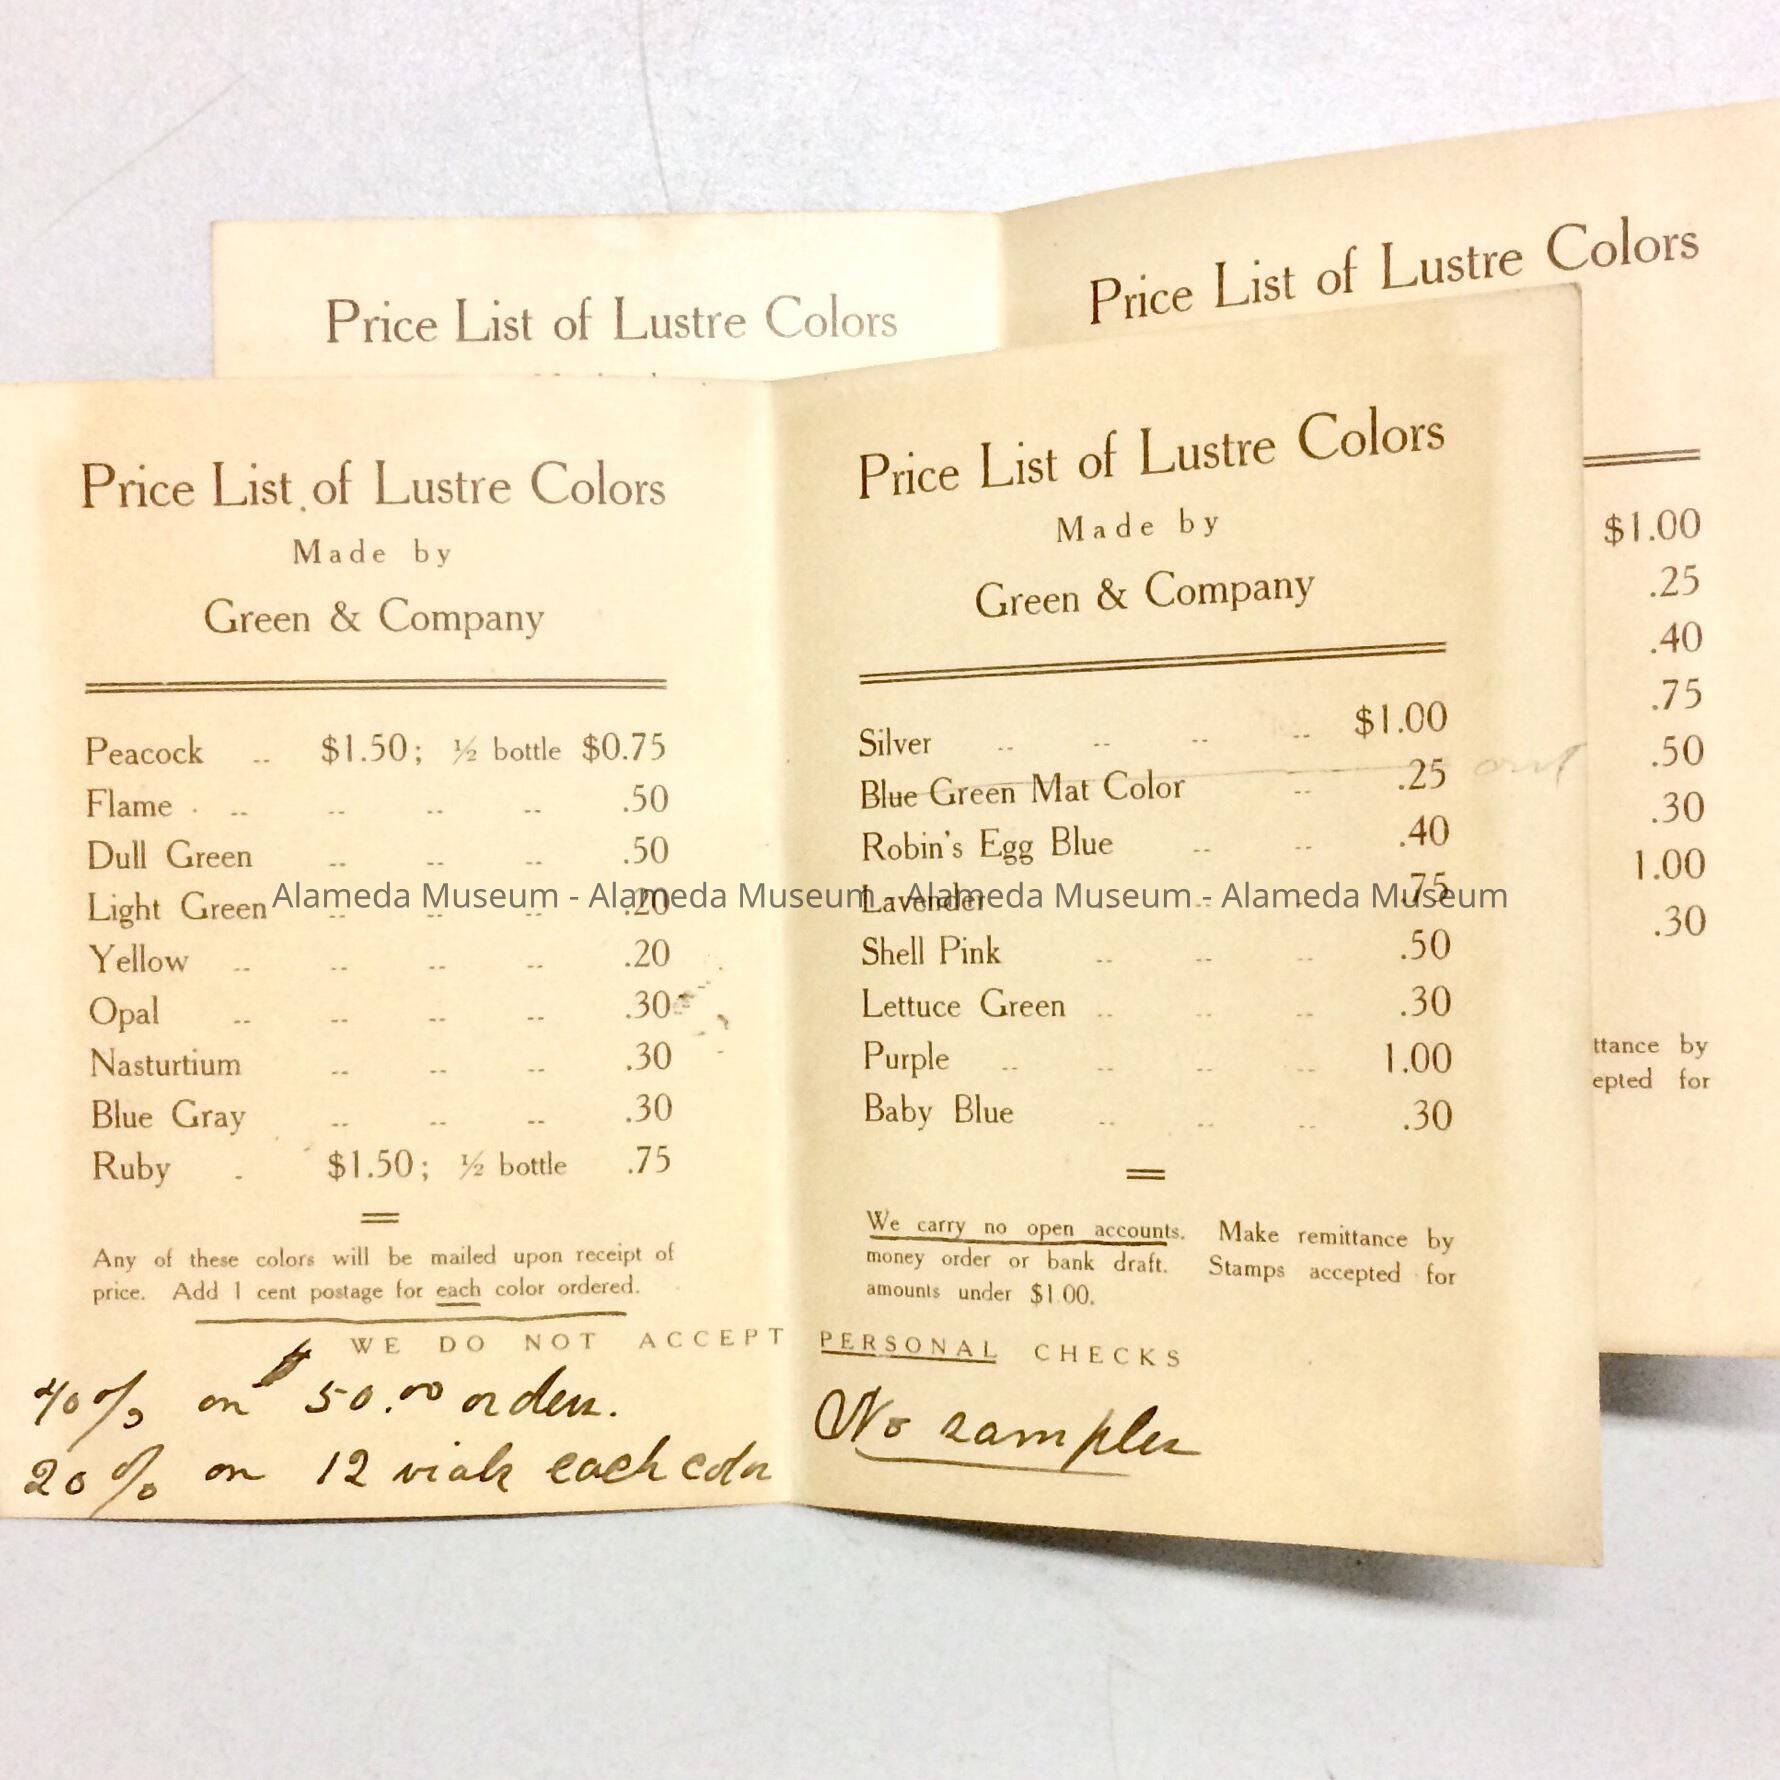 Price List of Lustre Colors
Price List of Lustre Colors
Price List of Lustre Colors
Made by
Green & Company
Peacock .. $1.50; ½ bottle $0.75
Flame .. .. .. .. .50
Dull Green .. .. .. .50
Light Green .. .. .. .20
Yellow .. .. .. .. .20
Opal .. .. .. .. .30
Nasturtium .. .. .. .30
Blue Gray .. .. .. .30
Ruby . $1.50; ½ bottle .75
Any of these colors will be mailed upon receipt of
price. Add 1 cent postage for each color ordered.
Price List of Lustre Colors
Made by
Green & Company
Silver .. .. .. .. $1.00
Blue Green Mat Color .. .25 out
Robin's Egg Blue .. .. .40
Lavender .. .. .. .75
Shell Pink .. .. .. .50
Lettuce Green .. .. .. .30
Purple .. .. .. .. 1.00
Baby Blue .. .. .. .30
We carry no open accounts. Make remittance by
money order or bank draft. Stamps accepted for
amounts under $1.00.
WE DO NOT ACCEPT PERSONAL CHECKS
40% on $50.00 orders.
20% on 12 vials each color
No samples
$1.00
.25
.40
.75
.50
.30
1.00
.30
ttance by
epted for
Alameda Museum - Alameda Museum - Alameda Museum - Alameda Museum